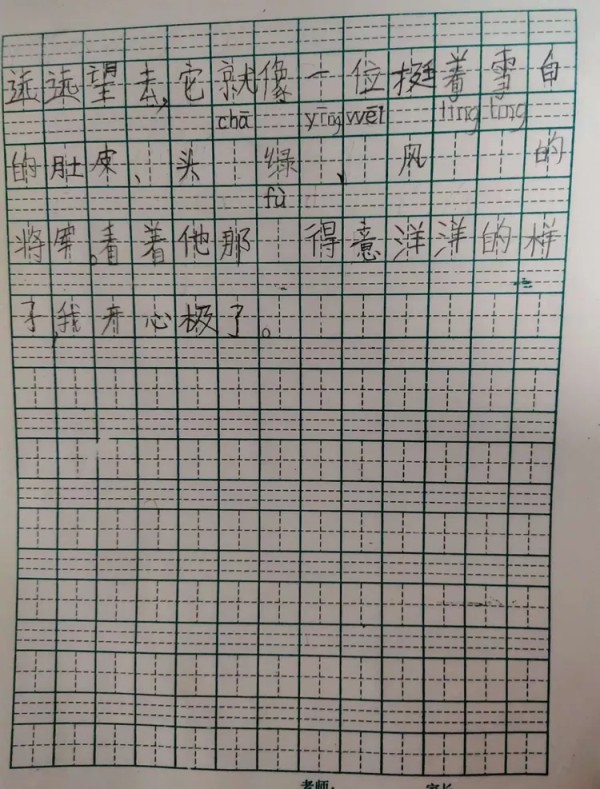 远远望去，它就像一位挺着雪白
chā yīng wēi lǐng lǐng
的肚皮、头 绿、风 的
fù
将军。看着他那 得意洋洋的样
子，我开心极了。
老师：